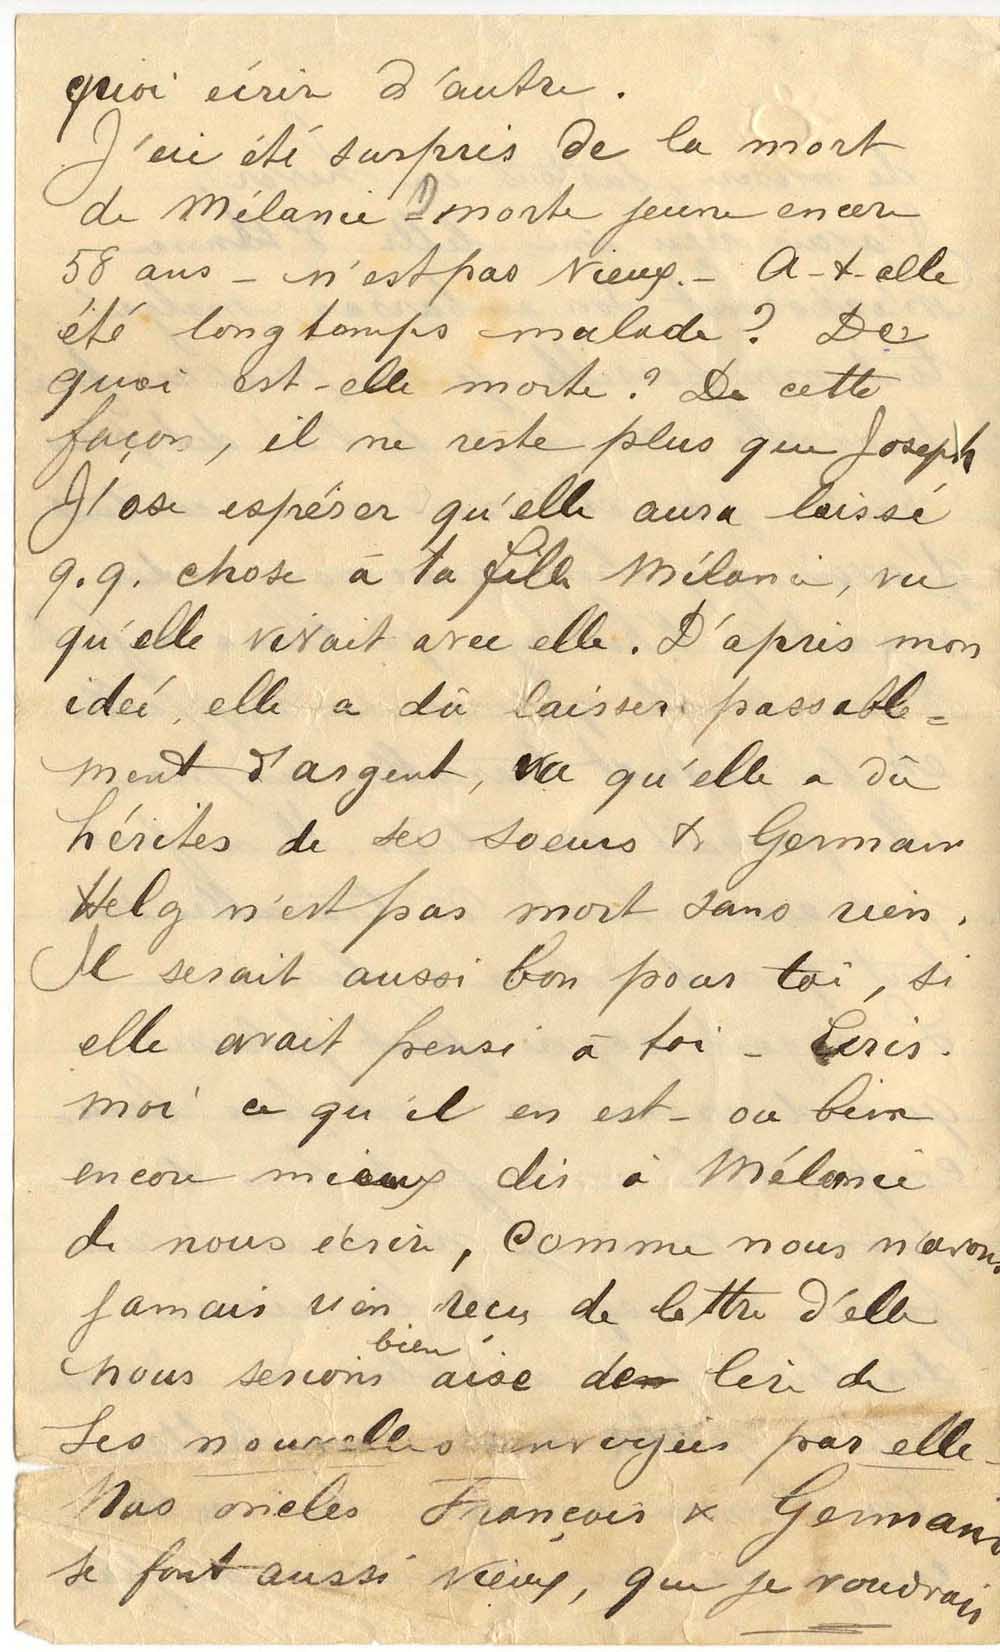 quoi écrire d'autre.
J'ai été surpris de la mort
de Mélanie - morte jeune encore
58 ans - n'est pas vieux. - A-t-elle
été longtemps malade ? De
quoi est-elle morte ? De cette
façon, il ne reste plus que Joseph
J'ose espérer qu'elle aura laissé
q.q. chose à ta fille Mélanie, vu
qu'elle vivait avec elle. D'après mon
idée, elle a dû laisser passable=
ment d'argent, vu qu'elle a dû
hériter de ses soeurs & Germain
Helg n'est pas mort sans rien.
Il serait aussi bon pour toi, si
elle avait pensé à toi - Ecris-
moi ce qu'il en est - ou bien
encore mieux dis à Mélanie
de nous écrire, Comme nous n'avons
jamais rien reçu de lettre d'elle
nous serions bien aise de lire de
ses nouvelles envoyées par elle -
Nos oncles François & Germain
se font aussi vieux, que je voudrais